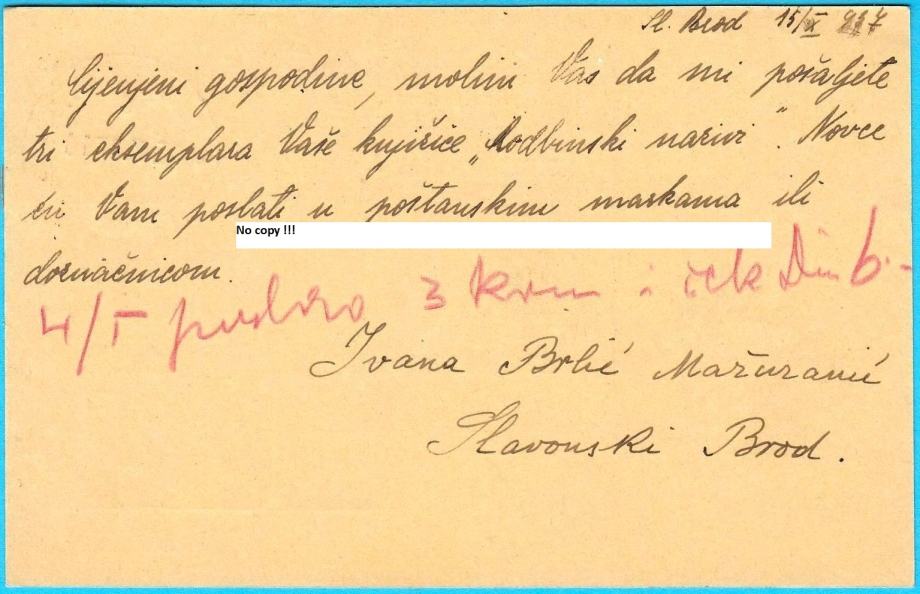 Sl. Brod 15/X 937
Cijenjeni gospodine, molim Vas da mi pošaljete
tri eksemplara Vaše knjižice „Rodbinski nazivi". Novce
ću Vam poslati u poštanskim markama ili
No copy !!!
doznačnicom.
4/I poslao 3 kom i ček Din 6.-
Ivana Brlić Mažuranić
Slavonski Brod.